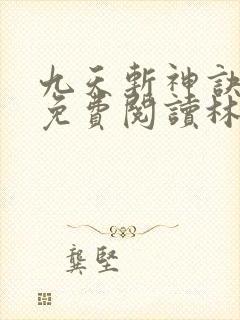 九天斬神訣
免費閱讀林
龔堅